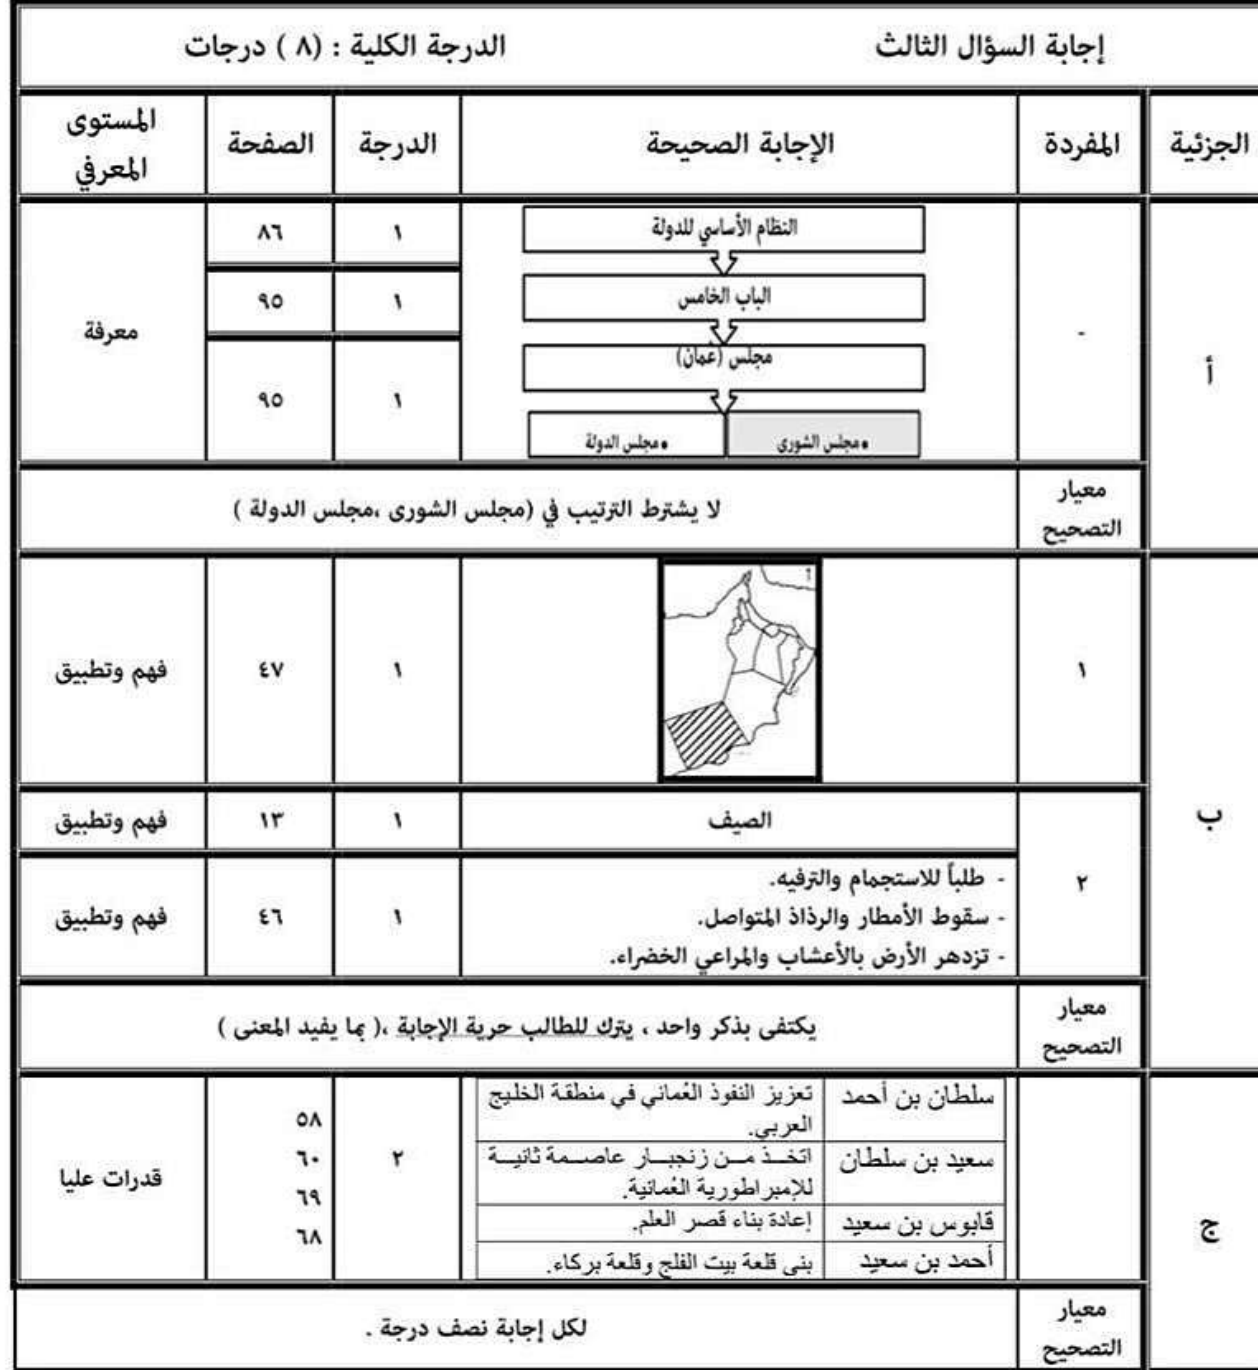 إجابة السؤال الثالث الدرجة الكلية : (٨ ) درجات
الجزئية المفردة الإجابة الصحيحة الدرجة الصفحة المستوى المعرفي
أ
-
النظام الأساسي للدولة
١ ٨٦
الباب الخامس
١ ٩٥
مجلس (عُمان)
•مجلس الشورى •مجلس الدولة
١ ٩٥
معرفة
معيار التصحيح
لا يشترط الترتيب في (مجلس الشورى ،مجلس الدولة )
ب
١
أ
١ ٤٧ فهم وتطبيق
٢
الصيف ١ ١٣ فهم وتطبيق
- طلباً للاستجمام والترفيه.
- سقوط الأمطار والرذاذ المتواصل.
- تزدهر الأرض بالأعشاب والمراعي الخضراء.
١ ٤٦ فهم وتطبيق
معيار التصحيح
يكتفى بذكر واحد ، يترك للطالب حرية الإجابة ،( بما يفيد المعنى )
ج
سلطان بن أحمد تعزيز النفوذ العُماني في منطقة الخليج
العربي.
سعيد بن سلطان اتخذ من زنجبار عاصمة ثانية
للإمبراطورية العُمانية.
قابوس بن سعيد إعادة بناء قصر العلم.
أحمد بن سعيد بنى قلعة بيت الفلج وقلعة بركاء.
٢
٥٨
٦٠
٦٩
٦٨
قدرات عليا
معيار التصحيح
لكل إجابة نصف درجة .